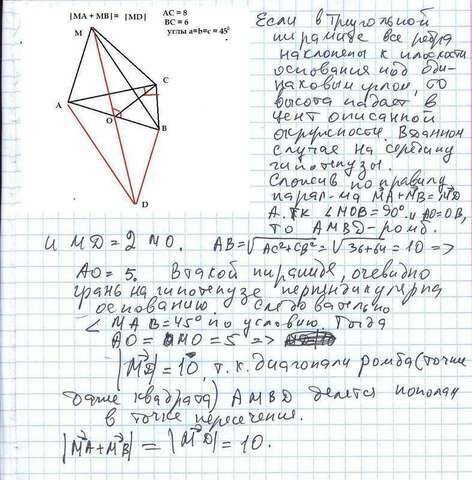 |MA + MB| = |MD|
AC = 8
BC = 6
углы a=b=c = 45°
M
C
A
O
B
D
Если в треугольной
пирамиде все ребра
наклонены к плоскости
основания под оди-
наковым углом, то
высота падает в
цент описанной
окружности. В данном
случае на середину
гипотенузы.
Сложив по правилу
парал-ма MA+MB=MD
А.т.к ∠MOB=90° и AO=OB,
то AMBD-ромб.
и MD=2MO. AB=√AC²+CB²=√36+64=10=>
AO=5. В такой пирамиде, очевидно
грань на гипотенузе перпендикулярна
основанию. Следовательно
∠MAB=45° по условию. Тогда
AO=MO=5=>
|MD|=10, т.к. диагонали ромба(точнее
даже квадрата) AMBD делятся пополам
в точке пересечения.
|MA+MB|=|MD|=10.